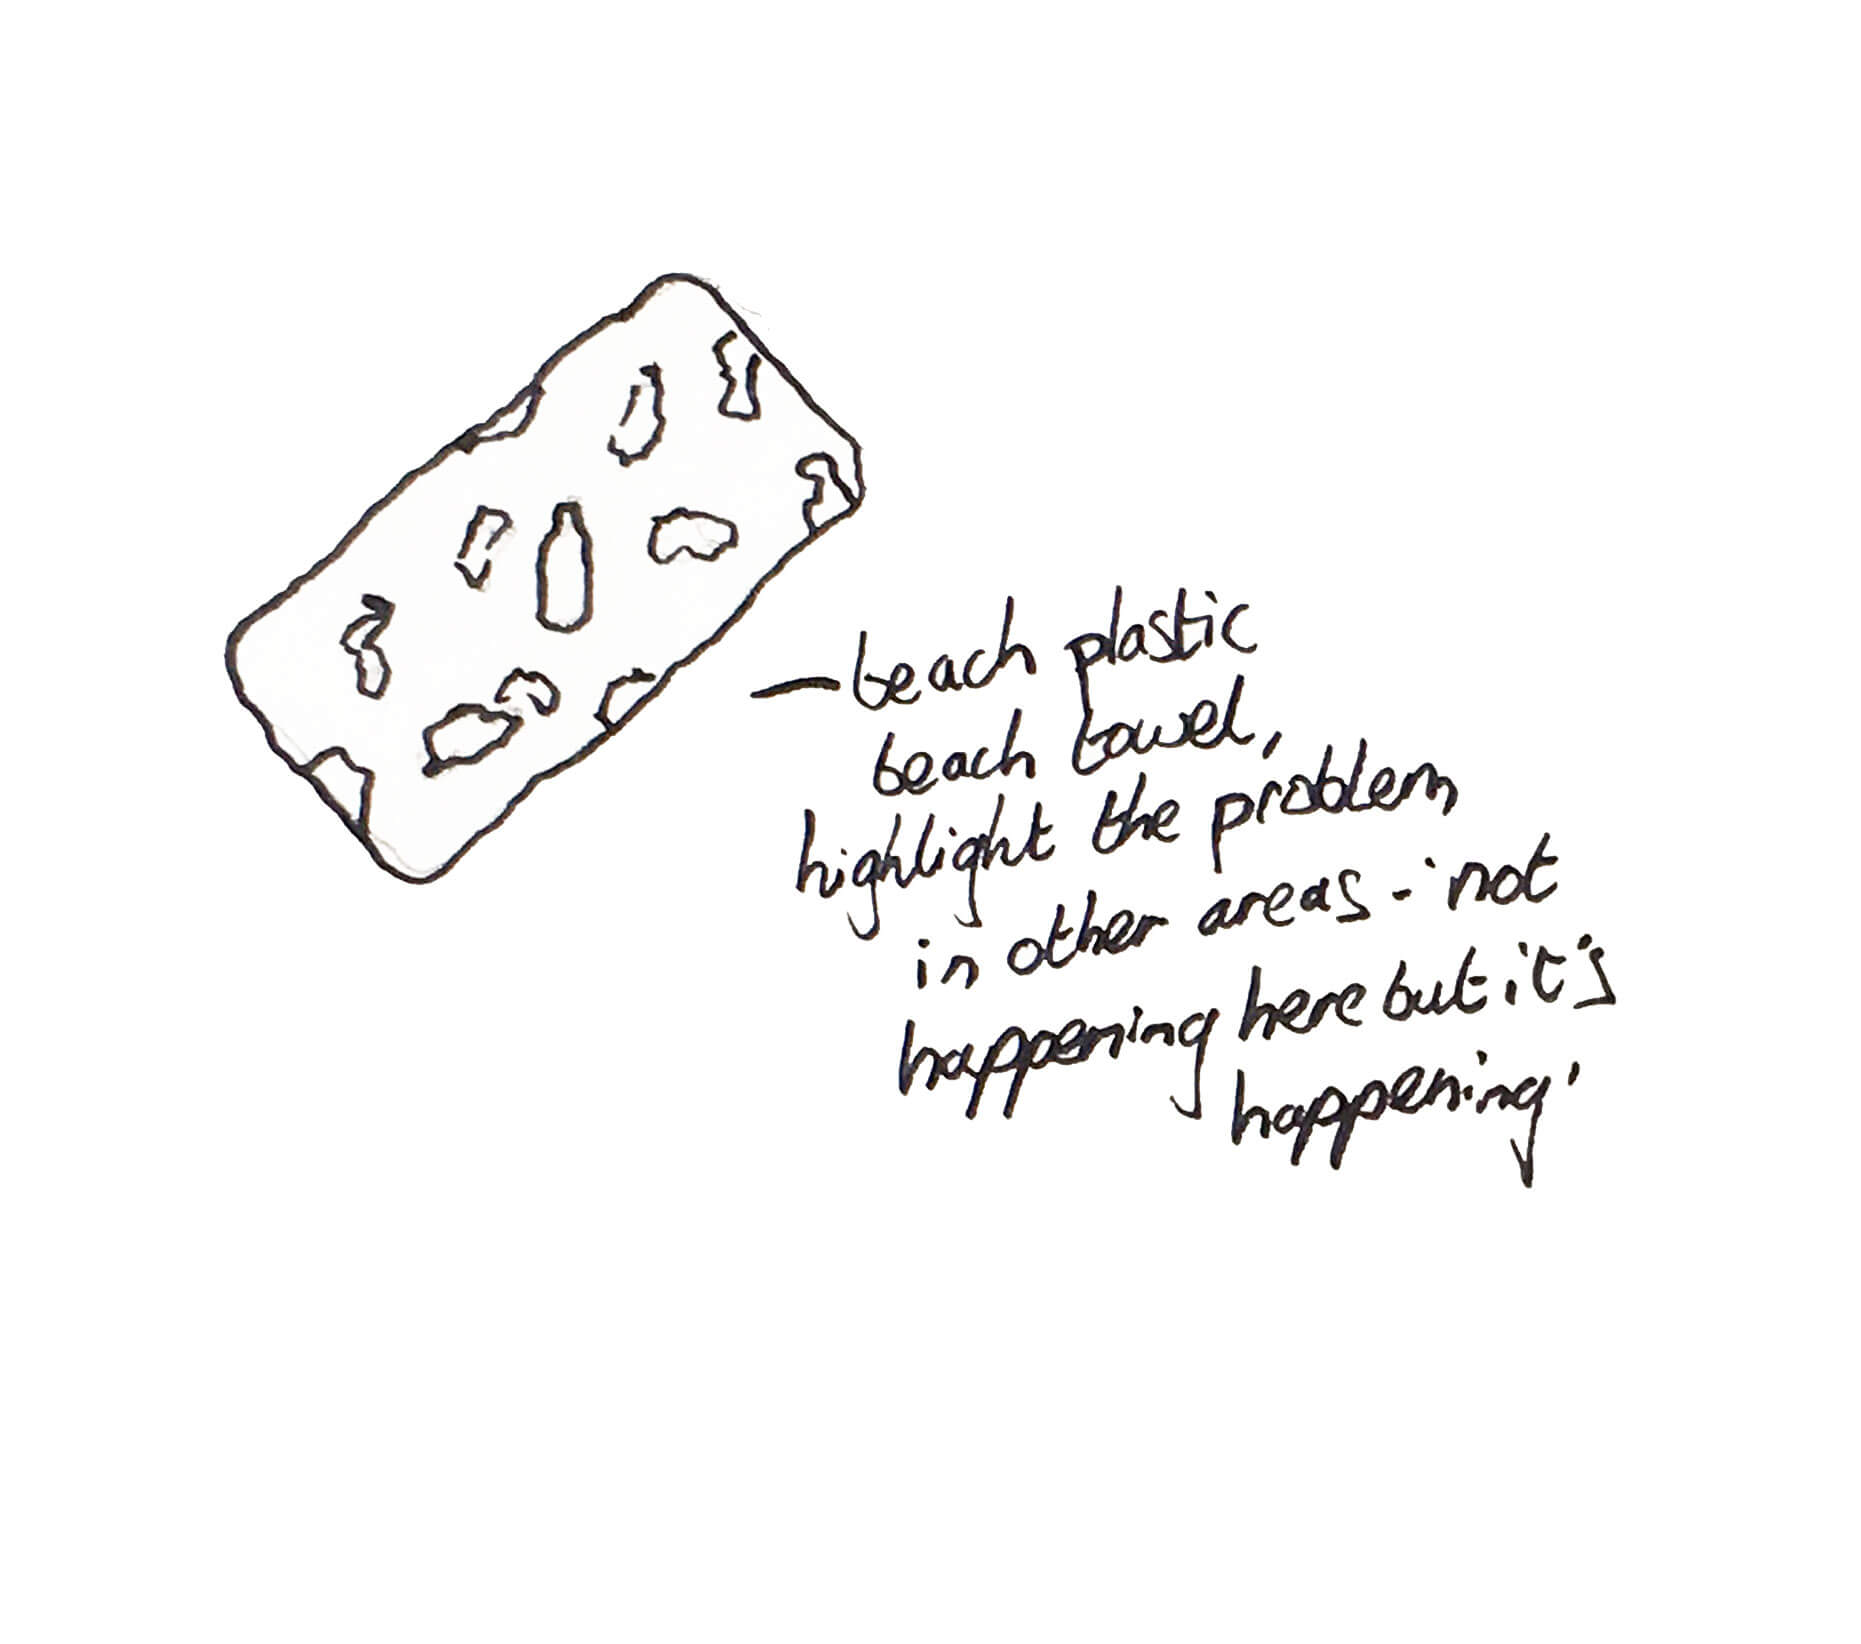 - beach plastic
beach towel,
highlight the problem
in other areas - 'not
happening here but it's
happening'